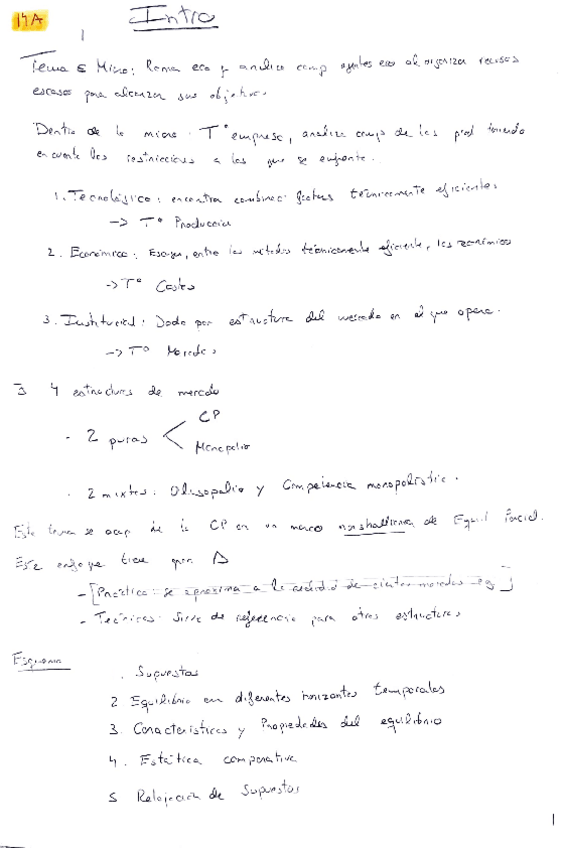 14A
Intro
Tema ∈ Micro: Rama eco q analiza comp agentes eco al organizar recursos
escasos para alcanzar sus objetivos
Dentro de la micro · Tª empresa, analiza comp de las prod teniendo
en cuenta las restricciones a las que se enfrenta.
1. Tecnológica: encontrar combinac. factores técnicamente eficientes
-> Tª Producción
2. Económica: Escoger, entre los métodos técnicamente eficiente, los económicos
-> Tª Costes
3. Institucional: Dada por estructura del mercado en el que opera.
-> Tª Mercados
∃ 4 estructuras de mercado
- 2 puras < CP
Monopolio
- 2 mixtas: Oligopolio y Competencia monopolística.
Este tema se ocup de la CP en un marco marshalliano de Equil Parcial.
Este enfoque tiene gran Δ
- [Práctica: se aproxima a la realidad de ciertos mercados eg]
- Teóricas: Sirve de referencia para otras estructuras
Esquema
. Supuestos
2 Equilibrio en diferentes horizontes temporales
3. Características y Propiedades del equilibrio
4. Estática comparativa
5 Relajación de Supuestos
1